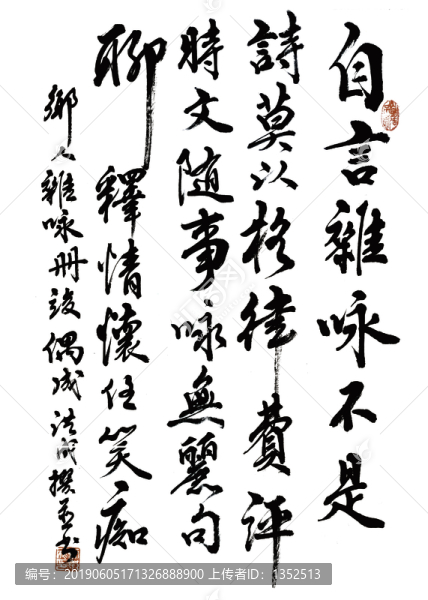 自言雜咏不是
詩莫以格律費評
時文隨事咏無麗句
聊釋情懷任笑痴
鄉人雜咏册竣偶成
編号：20190605171326888900 上传者ID：1352513